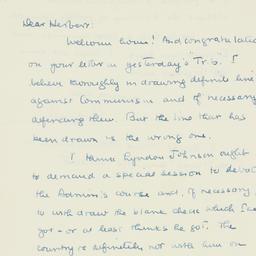 Dear Herbert:
Welcome home! And congratulatio
on your letter in yesterday's "Trib." I
believe thoroughly in drawing definite line
against Communism and if necessary
defending them. But the line that has
been drawn is the wrong one.
I think Lyndon Johnson ought
to demand a special session to debat
the Admin's course and, if necessary
to withdraw the blank check which Ike
got - or at least thinks he got. The
country is definitely not with him on